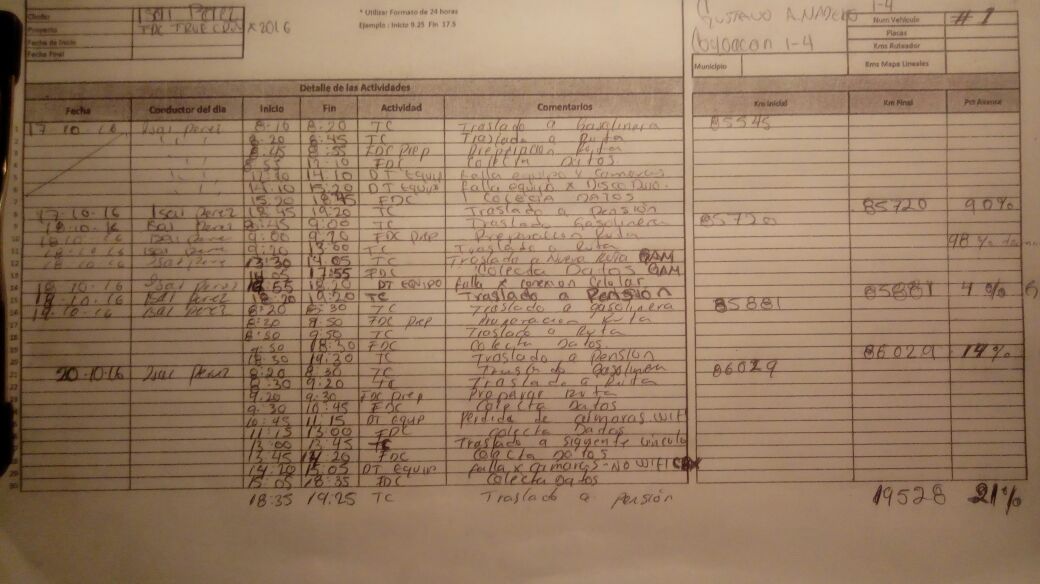 Cliente: Isai Perez
Proyecto TDC TRUE 2016
Fecha de Inicio
Fecha Final
* Utilizar Formato de 24 horas
Ejemplo : Inicio 9.25 Fin 17.5
GUSTAVO A. MADERO 1-4
Coyoacan 1-4
Num Vehiculo #1
Placas
Kms Ruteador
Municipio Kms Mapa Lineales
Detalle de las Actividades
Fecha Conductor del dia Inicio Fin Actividad Comentarios Km Inicial Km Final Pct Avance
17.10.16 Isai Perez 8:10 8:20 TC Traslado a Gasolinera 85545
8:20 8:45 TC Traslado a Ruta
8:45 8:55 FDC Prep Preparacion Ruta
8:55 FDC Colecta Datos
14:10 DT Equip falla equipo x Camaras
14:10 15:20 DT Equip falla equipo x Disco Duro
15:20 18:45 FDC Colecta DATOS
17.10.16 Isai Perez 18:45 19:20 TC Traslado a Pensión 85720 90%
18.10.16 Isai Perez 8:45 9:00 TC Traslado Gasolinera 85720
18.10.16 Isai Perez 9:00 9:20 FDC Prep Preparacion Ruta
18.10.16 Isai Perez 9:20 13:00 TC Traslado a Ruta 98 %
Isai Perez 13:30 14:05 TC Traslado a Nueva Ruta GAM
14:05 17:55 FDC Colecta Datos GAM
18.10.16 Isai Perez 18:20 DT EQUIPO falla x conexion Celular
Isai Perez 18:20 19:20 TC Traslado a PENSIÓN 85881 4 %
19.10.16 Isai Perez 8:20 8:30 TC Traslado a gasolinera 85881
FDC Prep Preparacion Ruta
9:50 TC Traslado a Ruta
18:30 FDC Colecta Datos
18:30 19:30 TC Traslado a Pension 86029 14%
20.10.16 Isai Perez 8:20 8:30 TC Traslado Gasolinera 86029
8:30 9:20 TC Traslado a Ruta
9:20 9:30 FDC Prep Preparar Ruta
9:30 10:45 FDC Colecta Datos
10:45 11:15 DT Equip Perdida de camaras WIFI
11:15 13:00 FDC Colecta Datos
13:00 13:45 TC Traslado a Siguente vinculo
13:45 14:20 FDC Colecta Datos
14:20 15:05 DT Equip falla x camaras - NO WIFI
15:05 18:35 FDC Colecta Datos
18:35 19:25 TC Traslado a pensión 19528 21%